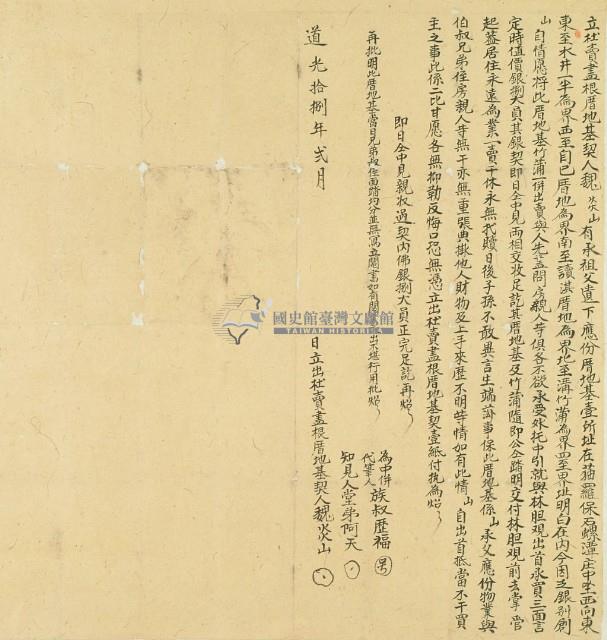 立杜賣盡根厝地基契人魏炎山有承祖父遺下應份厝地基壹所址在貓羅保石螺潭庄中坐西向東
東至水井一半為界西至自己厝地為界南至讀淇厝地為界北至溝竹蒲為界四至界址明白在內今因乏銀別創
山自情愿將此厝地基竹蒲一併出賣與人先盡問房親人等俱各不欲承受外托中引就與林胆观出首承買三面言
定時值價銀捌大員其銀契即日仝中見兩相交收足訖其厝地基及竹蒲隨即公仝踏明交付林胆观前去掌管
起蓋居住永遠為業一賣千休永無找贖日後子孫不敢異言生端滋事保此厝地基係山承父應份物業與
伯叔兄弟侄房親人等無干亦無重張典掛他人財物及上手來歷不明等情如有此情山自出首抵當不干買
主之事此係二比甘愿各無抑勒反悔口恐無憑立出杜賣盡根厝地基契壹紙付執為炤
即日仝中見親收過契內佛銀捌大員正完足訖再炤
再批明此厝地基當日兄弟叔侄面踏均分並無寫立鬮書如有出不堪行用批炤
為中併代筆人族叔歷福
知見人堂弟阿天
道光拾捌年弍月 日立出杜賣盡根厝地基契人魏炎山
國史館臺灣文獻館
TAIWAN HISTORICA